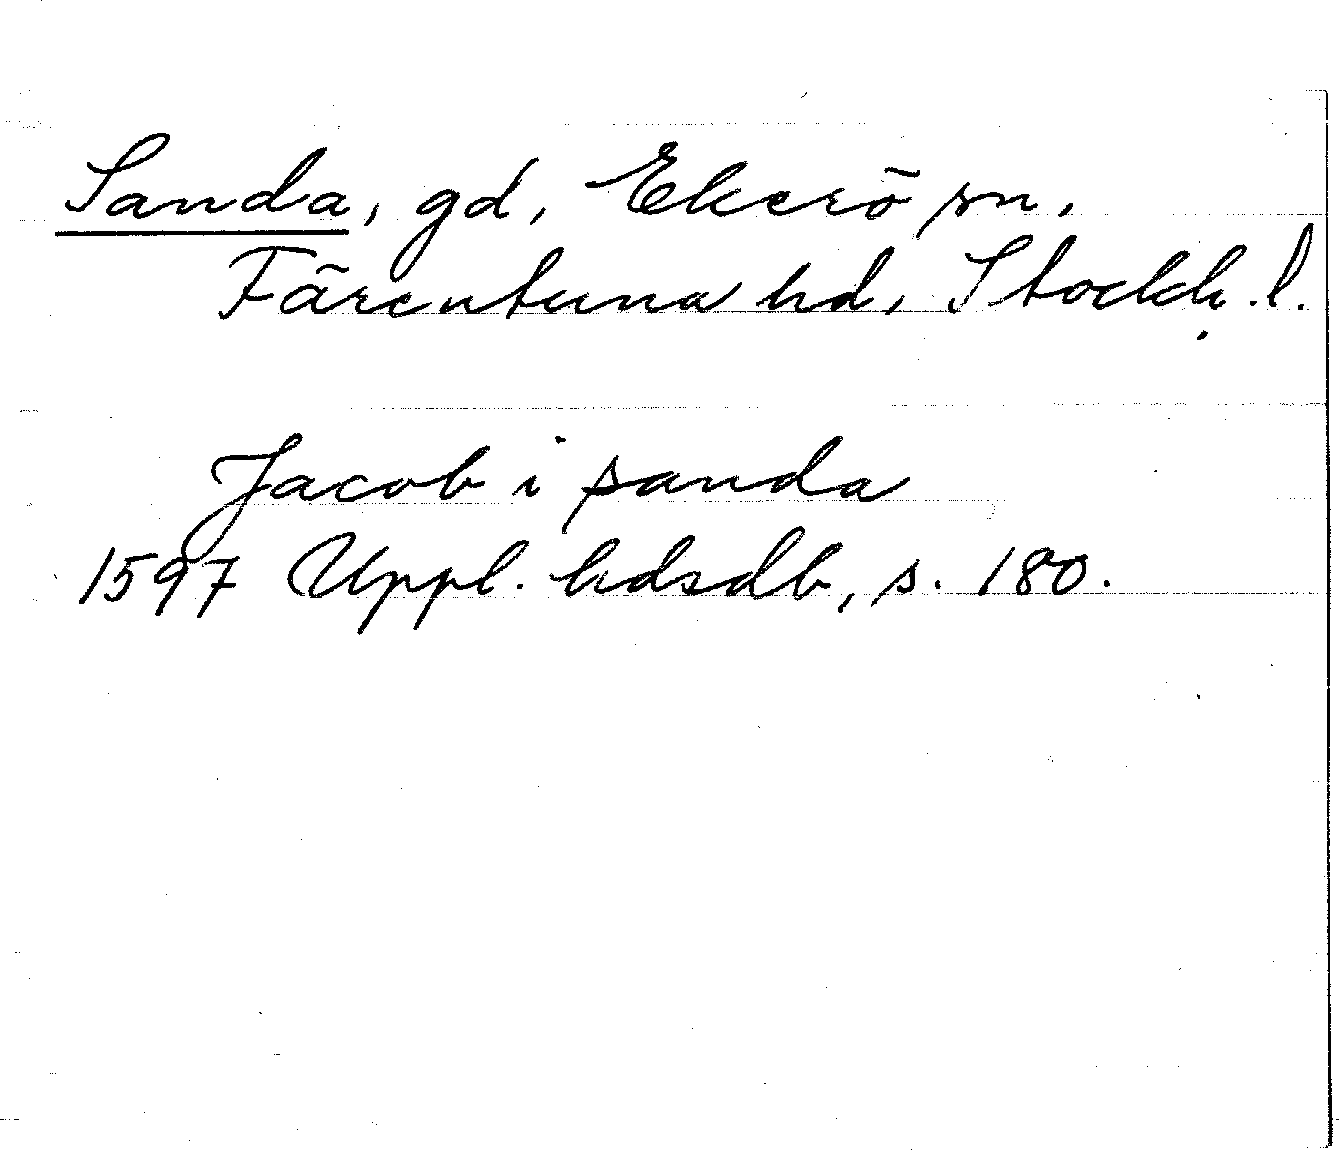 Sanda, gd, Ekerö sn,
Färentuna hd, Stockh. l.
Jacob i sanda
1597 Uppl. hdsdb, s. 180.